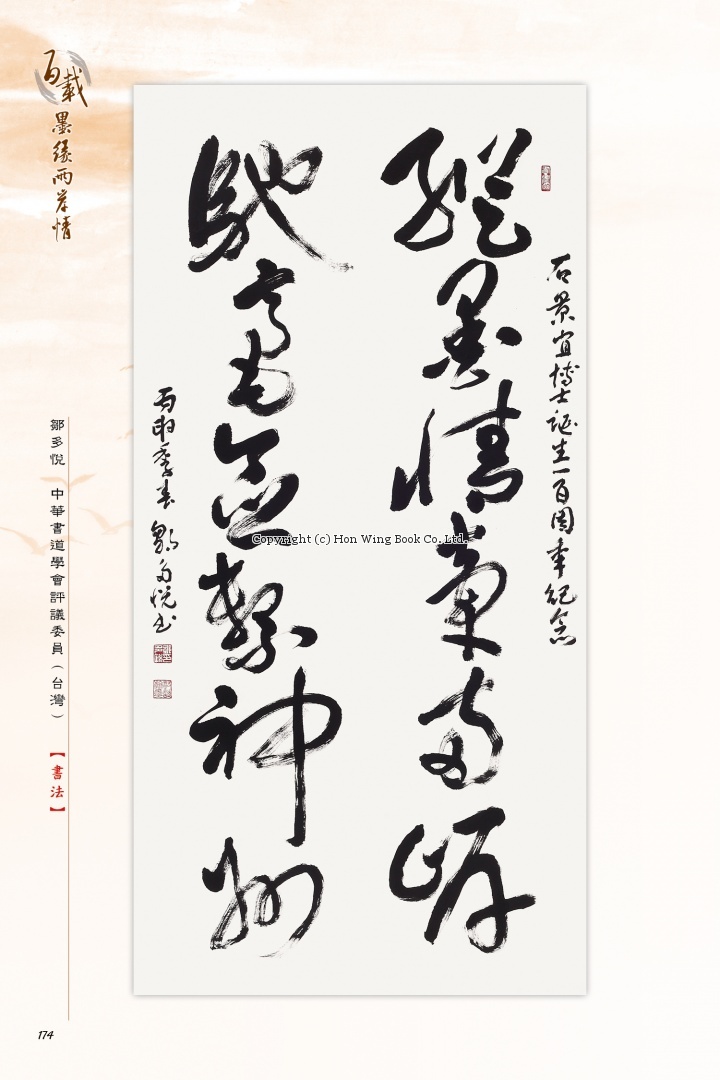 百載墨緣兩岸情
石景宜博士誕生一百周年紀念
縱墨情牽兩岸
馳毫意繫神州
丙申季春 鄒多悅書
Copyright (c) Hon Wing Book Co. Ltd.
鄒多悅 中華書道學會評議委員（台灣）
【書法】
174